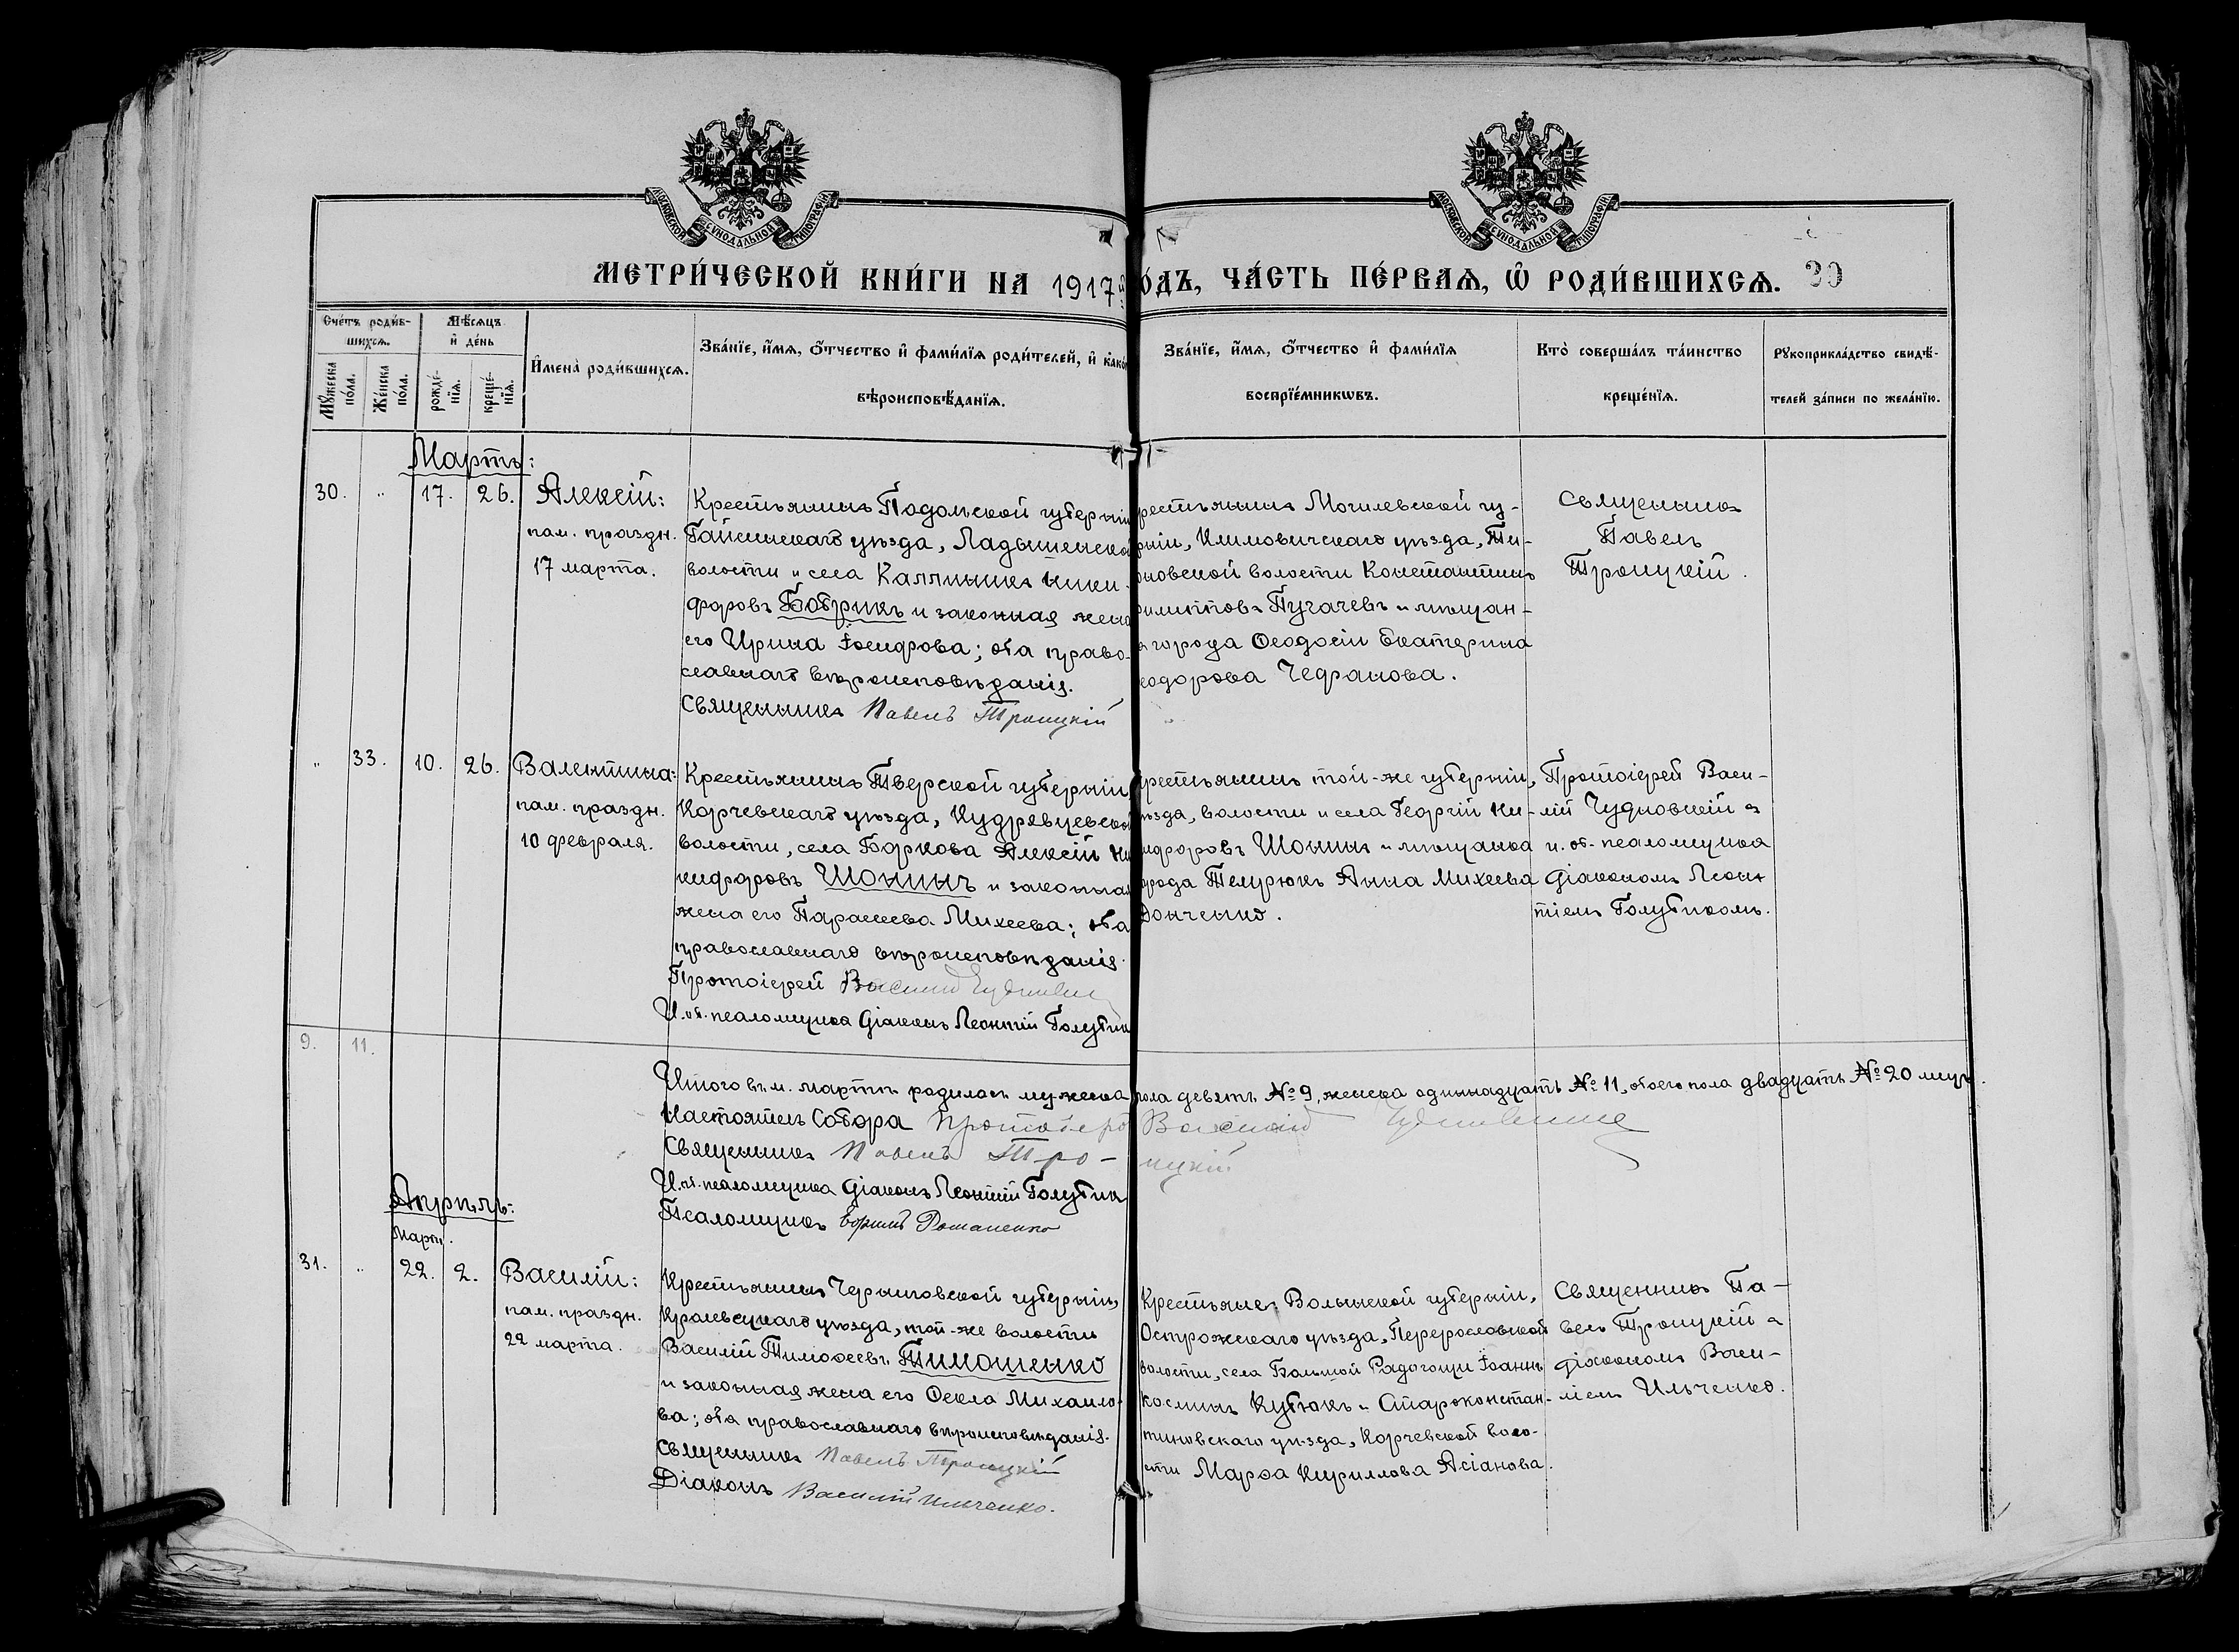 МОСКОВСКОЙ СУНОДАЛЬНОЙ ТИПОГРАФІИ
МОСКОВСКОЙ СУНОДАЛЬНОЙ ТИПОГРАФІИ
МЕТРИ́ЧЕСКОЙ КНИ́ГИ НА 1917 г
О́ДЪ, ЧА́СТЬ ПЕ́РВАѦ, Ѡ РОДИ́ВШИХСѦ. 39
Сче́тъ роди́в-
шихсѧ.
Мꙋ́жеска
по́ла.
Же́нска
по́ла.
Мѣ́сѧцъ
и҆ де́нь
рожде́-
нїѧ.
креще́-
нїѧ.
И҆мена̀ роди́вшихсѧ.
Зва́нїе, и҆́мѧ, ѻ҆́тчество и҆ фами́лїѧ роди́телей, и҆ како́
вѣроисповѣ́данїѧ.
Зва́нїе, и҆́мѧ, ѻ҆́тчество и҆ фами́лїѧ
воспрїе́мникѡвъ.
Кто̀ соверша́лъ та́инство
креще́нїѧ.
Рꙋкоприкла́дство свидѣ́-
телей за́писи по жела́нїю.
Мартъ:
30. " 17. 26. Алексій:
пам. праздн.
17 марта.
Крестьянинъ Подольской губерніи
Гайсинскаго уѣзда, Ладыженско
волости и села Каллиникъ Ники-
форовъ Бобрикъ и законная жена
его Ирина Іосифова; оба право-
славнаго вѣроисповѣданія.
Священникъ Павелъ Троицкій
рестьянинъ Могилевской гу-
рніи, Климовичскаго уѣзда, Ти-
оновской волости Константинъ
илипповъ Пугачевъ и мѣщан-
а города Ѳеодосіи Екатерина
еодорова Чефанова.
Священникъ
Павелъ
Троицкій.
" 33. 10. 26. Валентина:
пам. праздн.
10 февраля.
Крестьянинъ Тверской губерніи
Корчевскаго уѣзда, Кудрявцевско
волости, села Боркова Алексій Ни
кифоровъ Шонинъ и законная
жена его Параскева Михеева; оба
православнаго вѣроисповѣданія.
Протоіерей Василій Чудновскій
И. об. псаломщика діаконъ Леонтій Голубки
рестьянинъ той-же губерніи,
ѣзда, волости и села Георгій Ни-
ифоровъ Шонинъ и мѣщанка
орода Темрюкъ Анна Михеева
Донченко.
Протоіерей Васи-
лій Чудновскій съ
и. об. псаломщика
діакономъ Леон
тіемъ Голубкомъ.
9. 11.
Итого въ м. мартѣ родилось мужеска пола девять №9, женска одиннадцать №11, обоего пола двадцать №20 муж.
Настоятель Собора Протоіерей Василій Чудновскій
Священникъ Павелъ Тро-ицкій
И. об. псаломщика діаконъ Леонтій Голубки
Псаломщикъ Ефимъ Романенко
Апрѣль:
Март.
31. " 22. 2. Василій:
пам. праздн.
22 марта.
Крестьянинъ Черниговской губерніи,
Кролевецкаго уѣзда, той-же волости
Василій Тимоѳеевъ Тимошенко
и законная жена его Ѳекла Михаило-
ва; оба православнаго вѣроисповѣданія.
Священникъ Павелъ Троицкій
Діаконъ Василій Ильченко.
Крестьяне: Волынской губерніи,
Острожскаго уѣзда, Перерословской
волости, села Большой Радогощи Іоаннъ
Косминъ Кубюкъ и Староконстан-
тиновскаго уѣзда, Корчевской воло-
сти Марѳа Кириллова Асіанова.
Священникъ Па-
велъ Троицкій съ
діакономъ Васи-
ліемъ Ильченко.